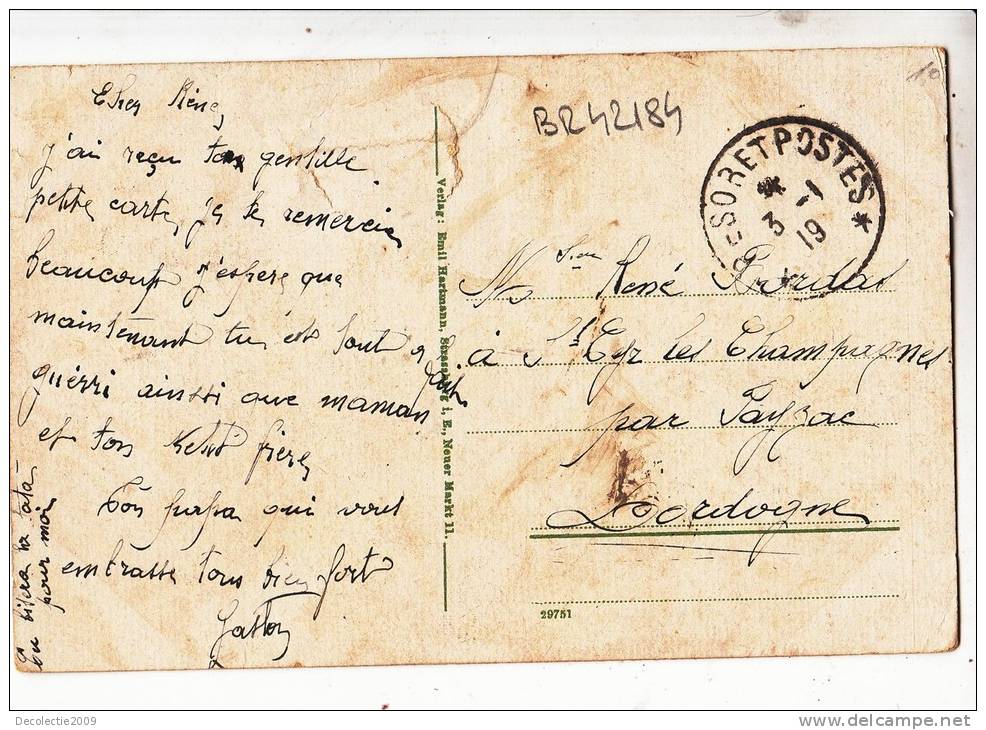 Cher Réné,
j'ai reçu ta gentille
petite carte, je te remercie
beaucoup j'espere que
maintenant tu est tout a fait
guérri ainsi que maman
et ton petit frère,
Ton papa qui vous
embrasse tous bien fort
Gaston
Tu bisera ta tata
pour moi
Verlag: Emil Hartmann, Strassburg i. E., Neuer Markt 11.
BR42184
10
TRESOR ET POSTES *
* 3 -1 19
René
à St Cyr les Champagnes
par Payzac
Dordogne
29751
Decolectie2009
www.delcampe.net